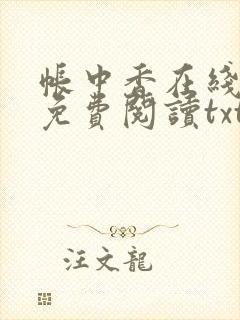 帳中香在綫
免費閱讀txt
汪文龍